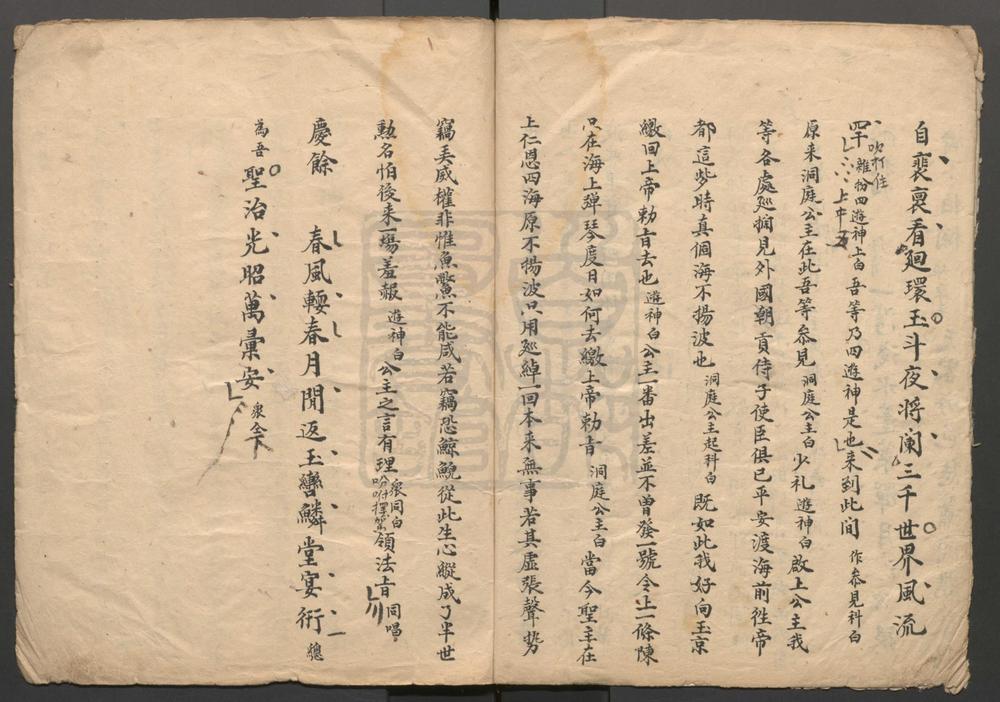 自裴褱看廻環玉斗夜将闌三千世界風流
吹打住
四千雜扮四遊神上白吾等乃四遊神是也来到此間作叅見科白
上中五
原来洞庭公主在此吾等叅見洞庭公主白少礼遊神白啟上公主我
等各處廵攔見外國朝貢侍子使臣俱已平安渡海前徃帝
都這些時真個海不揚波也洞庭公主起科白既如此我好向玉京
繳回上帝勅旨去也遊神白公主一番出差並不曾發一號令止一條陳
只在海上弹琴度日如何去繳上帝勅旨洞庭公主白當今聖主在
上仁恩四海原不揚波只用廵綽一回本来無事若其虛張聲势
竊弄威權非惟魚鱉不能咸若竊恐鯨鯢從此生心縱成了半世
勲名怕後来一塲羞赧遊神白公主之言有理衆同白領法旨同唱
慶餘 春風輕春月閒返玉鸞鱗堂宴衎
為吾聖治光昭萬彙安衆仝下